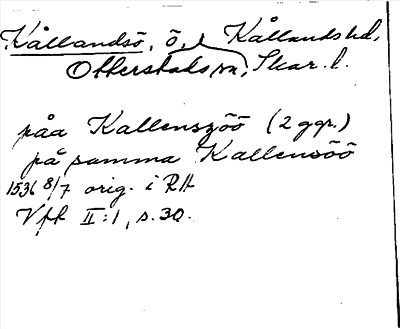 Kållandsö, ö, Kållands hd,
Otterstads sn, Skar. l.
påa Kallenszöö (2 ggr.)
på samma Kallensöö
1536 8/7 orig. i RA
Vfl II:1, s. 30.